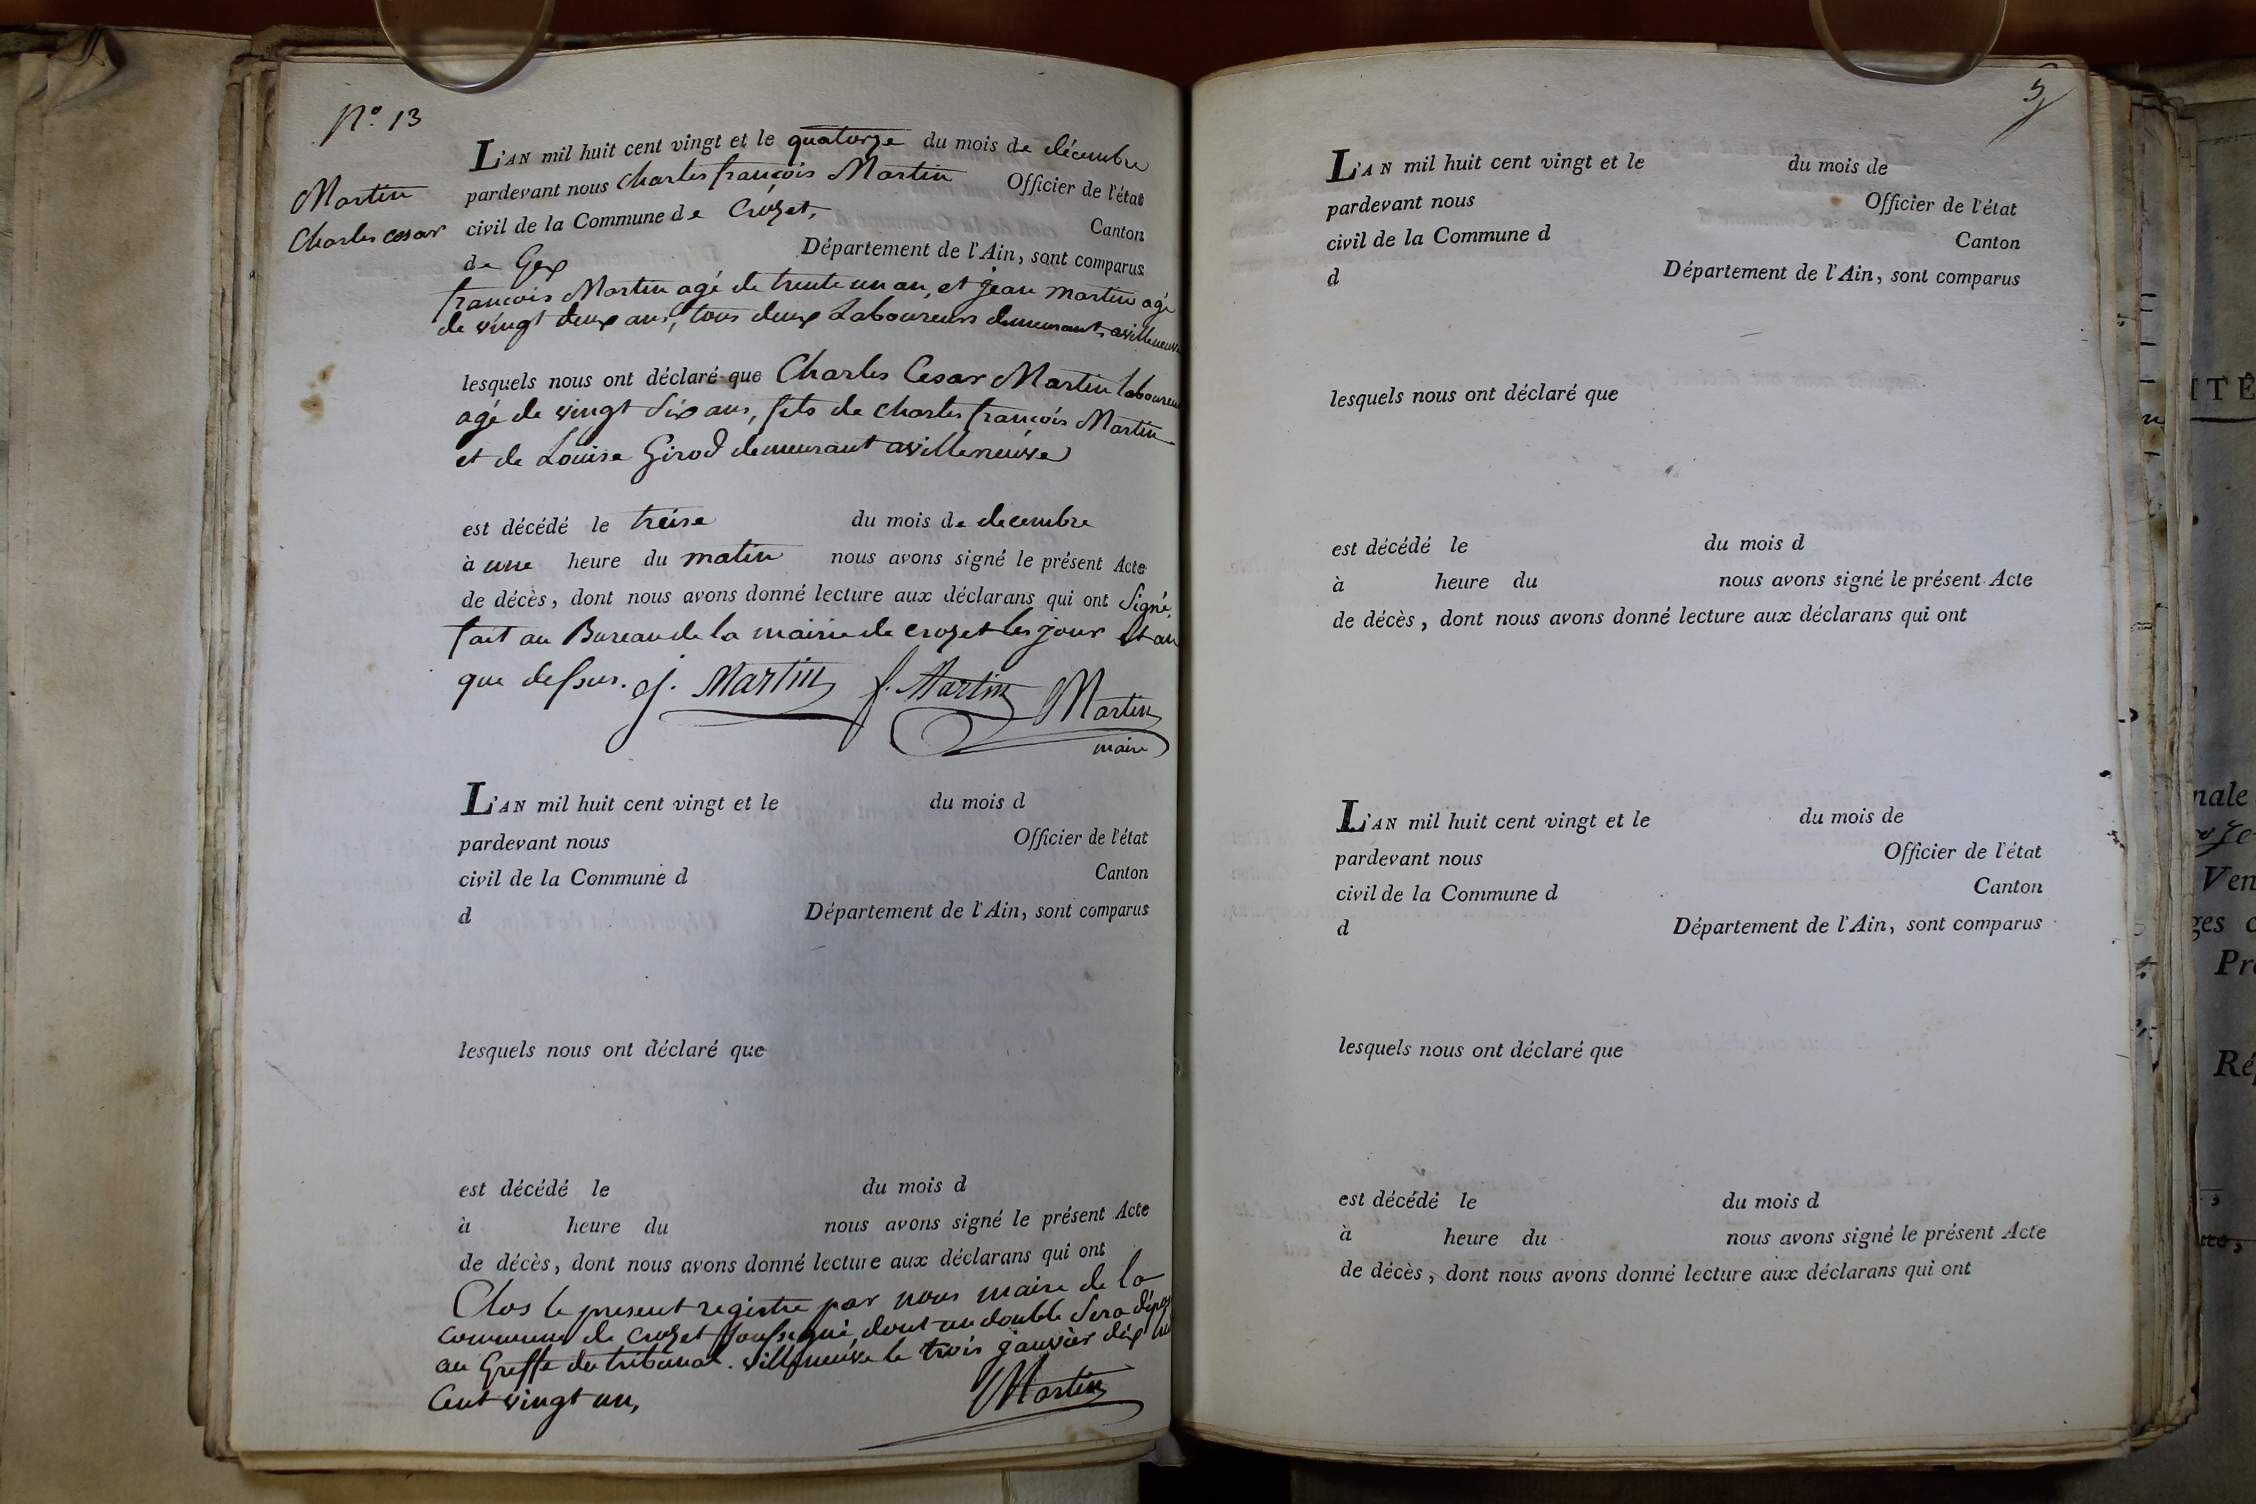 N.° 13
Martin
Charles cesar
L'AN mil huit cent vingt et le quatorze du mois de décembre
pardevant nous Charles françois Martin Officier de l'état
civil de la Commune de Crozet, Canton
de Gex Département de l'Ain, sont comparus
françois Martin agé de trente un an, et jean martin agé
de vingt deux ans, tous deux Laboureurs demeurants avilleneuve
lesquels nous ont déclaré que Charles Cesar Martin laboureur
agé de vingt six ans, fils de charles françois Martin
et de Louise Girod demeurant avilleneuve
est décédé le treise du mois de decembre
à une heure du matin nous avons signé le présent Acte
de décès, dont nous avons donné lecture aux déclarans qui ont Signé.
fait au Bureau de la mairie de crozet les jour et an
que dessus. J. Martin f. Martin Martin
maire
L'AN mil huit cent vingt et le du mois d
pardevant nous Officier de l'état
civil de la Commune d Canton
d Département de l'Ain, sont comparus
lesquels nous ont déclaré que
est décédé le du mois d
à heure du nous avons signé le présent Acte
de décès, dont nous avons donné lecture aux déclarans qui ont
Clos le present registre par nous maire de la
commune de crozet soussigné, dont un double Sera dépos
au Greffe du tribunal. villeneuve le trois janvier dix hui
Cent vingt un,
Martin
5
L'AN mil huit cent vingt et le du mois de
pardevant nous Officier de l'état
civil de la Commune d Canton
d Département de l'Ain, sont comparus
lesquels nous ont déclaré que
est décédé le du mois d
à heure du nous avons signé le présent Acte
de décès, dont nous avons donné lecture aux déclarans qui ont
L'AN mil huit cent vingt et le du mois de
pardevant nous Officier de l'état
civil de la Commune d Canton
d Département de l'Ain, sont comparus
lesquels nous ont déclaré que
est décédé le du mois d
à heure du nous avons signé le présent Acte
de décès, dont nous avons donné lecture aux déclarans qui ont
ITÉ
nale
Ven
ges
Pr
Ré